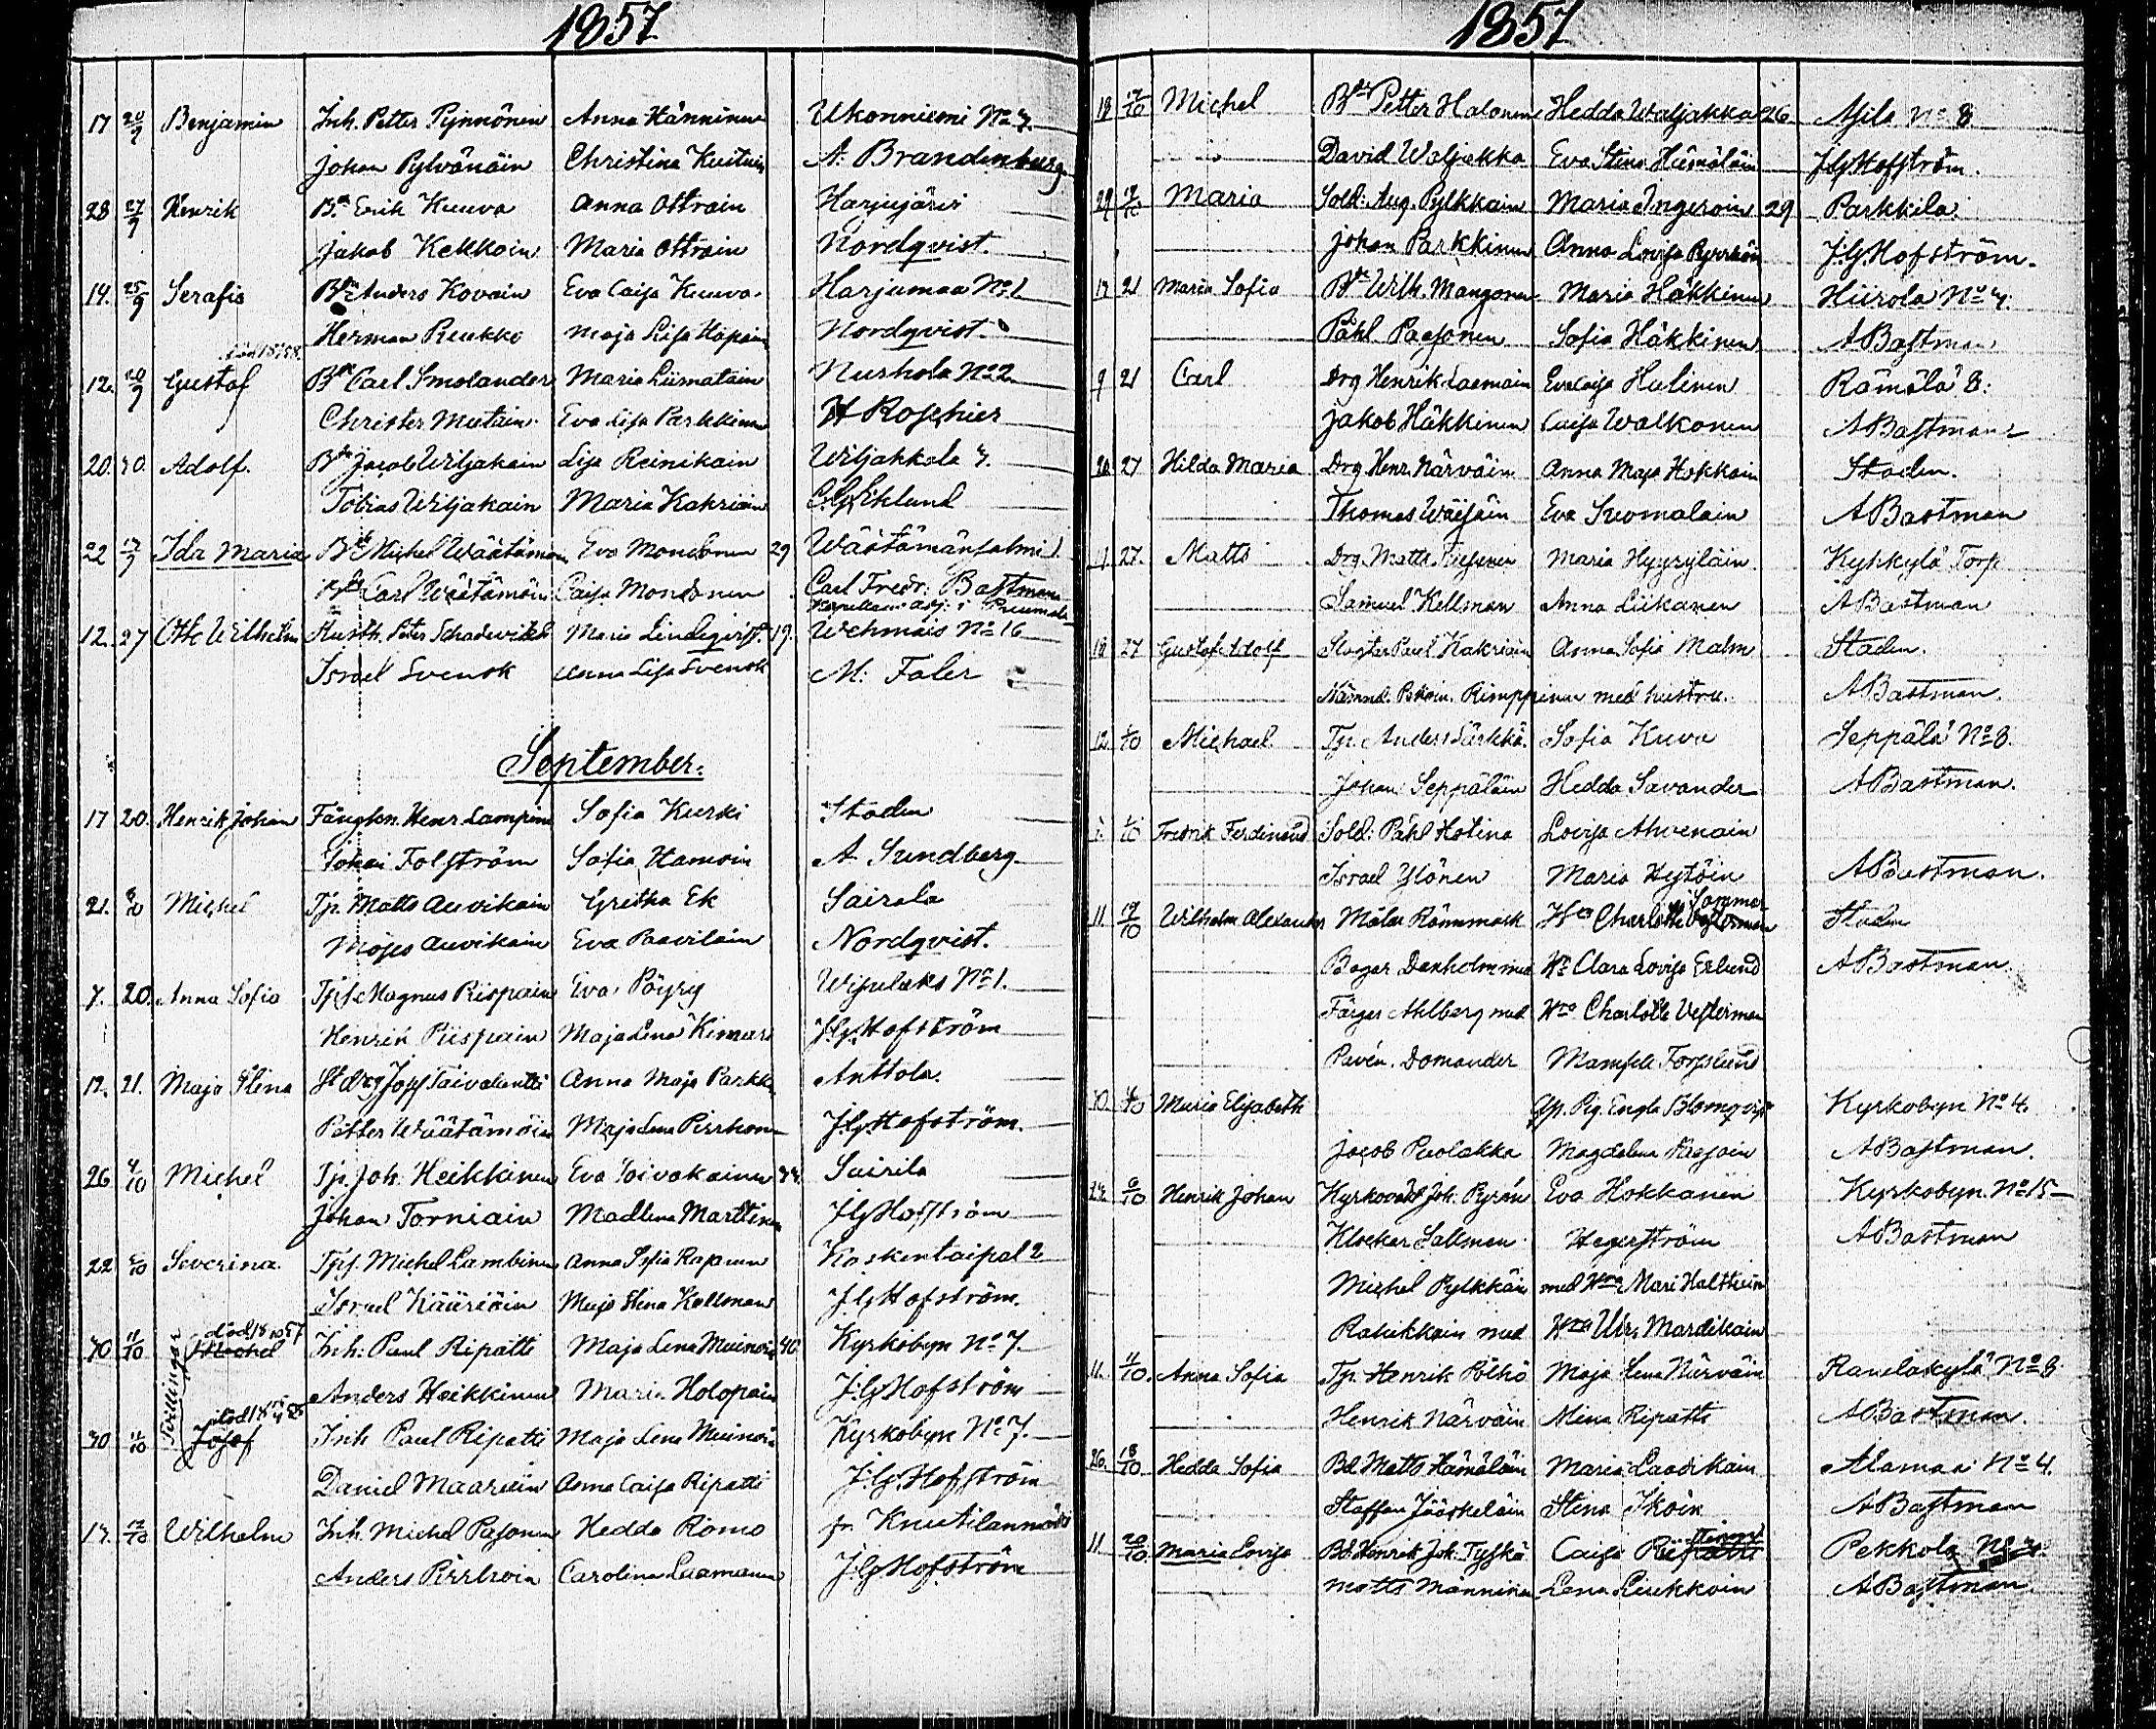 1857
17 20/9 Benjamin Inh. Petter Pynnönen Anna Hänninen Ukonniemi No 7.
Johan Pylvänäin Christina Kuituin A. Brandenburg
28 27/9 Henrik Bn Erik Kuuva Anna Ottrain Harjujärvi
Jakob Kekkoin Maria Ottrain Nordqvist.
14. 25/9 Serafia Bdn Anders Kovain Eva Caisa Kuuva. Harjumaa No 1
Herman Reukko Maja Lisa Hapain Nordqvist.
12. 20/9 Gustaf Bdn Carl Smolander Maria Liimatain Nurhola No 2.
Christer Mutain Eva Lisa Parkkinen H Roschier
20. 30. Adolf. Bdn Jacob Wiljakain Lisa Reinikain Wiljakkala 7.
Tobias Wiljakain Maria Kakriain C.G. Eklund
22 Ida Maria Bdn Michel Wäätämöin Eva Mononen 29 Wäätämänsalmi 1
Carl Wäätämöin Caisa Mononen Carl Fredr: Bastman
Kapellans adj: i Puumala
12. 27 Otto Wilhelm Peter Schadevitz Maria Lindqvist. 19. Wehmais No 16
Israel Svensk Anna Lisa Svensk M: Faler
September.
17 20. Henrik Johan Fångkn. Henr. Lampinen Sofia Kurki Staden
Johan Folström Sofia Hamoin A Sundberg
21. Michel Tp. Matts Auvikain Gretha Ek Sairala
Moses Auvikain Eva Paavilain Nordqvist.
7. 20. Anna Sofia Magnus Piispain Eva Pöyry Wipulaks No 1.
Henrik Piispain Maja Lena Kimari J.G. Hofström
12. 21. Maja Stina Josef Taivalantti Anna Maja Parkki Anttola.
Petter Wäätämöin Maja Lena Pirrhonen J.G. Hofström.
26 4/10 Michel Tp. Joh. Heikkinen Eva Toivakainen Sairila
Johan Torniain Madlena Marttinen J G Hofström
22 Severina. Michel Lambinen Anna Sofia Rapanen Koskentaipal 2
Israel Kääriäin Maja Stina Kollman J G Hofström.
Tvillingar
död 18 10 57
30 11/10 Michel Inh: Paul Ripatti Maja Lena Muinoin 40 Kyrkobyn No 7.
Anders Heikkinen Maria Holopain J.G Hofström
30 11/10 Josef Inh Paul Ripatti Maja Lena Muinoin Kyrkobyn No 7.
Daniel Maariain Anna Caisa Ripatti J.G. Hofström
12/10 Wilhelm Inh. Michel Pasonen Hedda Romo
Anders Pirrhoin Carolina Laamanen J G Hofström
1857
18 Michel Bdn Petter Halonen Hedda Waljakka 26 Asila No 8
David Waljakka Eva Stina Hämäläin J G Hofström.
Maria Sold: Aug. Pylkkäin Maria Ingeroin 29 Parkkila.
Johan Parkkinen Anna Lovisa J.G. Hofström.
17 21 Maria Sofia Bdn Wilh. Mangonen Maria Häkkinen Hiirola No 7.
Påhl Paasonen Sofia Häkkinen A Bastman
9 21 Carl Drg Henrik Laamain Eva Caisa Hulinen Rämälä 8.
Jakob Häkkinen Caisa Walkonen A Bastman
27 Hilda Maria Drg. Henr. Närväin Anna Maja Hokkain Staden.
Thomas Wäisäin Eva Suomalain A Bastman
27. Matts Drg. Matts Maria Hyyryläin Kyhkylä Torp
Samuel Kellman Anna Liikanen A Bastman
18 27 Gustaf Adolf Paul Kakriain Anna Sofia Malm Staden.
Nämnd. Rimppinen med hustru. A Bastman.
12 Michael Tp. Anders Särkkä Sofia Kuva Seppälä No 8.
Johan Seppäläin Hedda Savander A Bastman.
Fredrik Ferdinand Sold: Påhl Hotina Lovisa Ahvenain
Israel Ylönen Maria Hytöin A Bastman.
11 19/10 Wilhelm Alexander Målar Römmark Hu Charlotte Staden
Bagar Danholm med Hu Clara Lovisa Erlund A Bastman.
Färgar Ahlberg med Hu Charlotte Vesterman
Domander Mamsell Forslund
Maria Elisabeth Pig. Engla Blomqvist Kyrkobyn No 4.
Jacob Puolakka Magdalena Paasoin A Bastman.
6/10 Henrik Johan Joh: Eva Hokkanen Kyrkobyn No 15
Klockar Sallmen Hegerström A Bastman
Michel Pylkkäin med Hu Mari Halttuin
Rahikkain med Hu Ulr. Mardikain
11. 11/10. Anna Sofia Tp. Henrik Pölhö Maja Lena Närväin Randakylä No 8
Henrik Närväin Mina Ripatti A Bastman.
26. 18/10 Hedda Sofia Bd. Matts Hämäläin Maria Laadikain Alamaa No 4.
Staffan Jääskeläin Stina Ikoin A Bastman
11 20/10 Maria Lovisa Bd. Henrik Joh. Tyskä Caisa Pekkola
Matts Manninen Lena Liukkoin A Bastman.